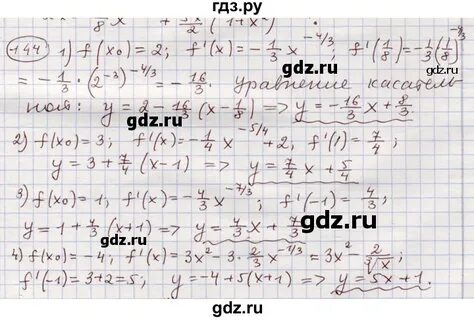 1/8 x + 3x/2 (1+x²)
144 1) f(x₀)=2; f'(x)=-1/3 x^(-4/3); f'(1/8)=-1/3(1/8)^(-4/3)
= -1/3·(2⁻³)^(-4/3) = -16/3. уравнение касатель-
ной: y=2-16/3(x-1/8) => y=-16/3x+8/3
2) f(x₀)=3; f'(x)=-1/4 x^(-5/4)+2; f'(1)=7/4;
y=3+7/4(x-1) => y=7/4x+5/4
3) f(x₀)=1, f'(x)=-4/3 x^(-7/3); f'(-1)=4/3;
y=1+4/3(x+1) => y=4/3x+7/3
4) f(x₀)=-4; f'(x)=3x²-3·2/3 x^(-1/3)=3x²-2/∛x;
f'(-1)=3+2=5; y=-4+5(x+1) => y=5x+1.
гдз.ру
гдз.ру